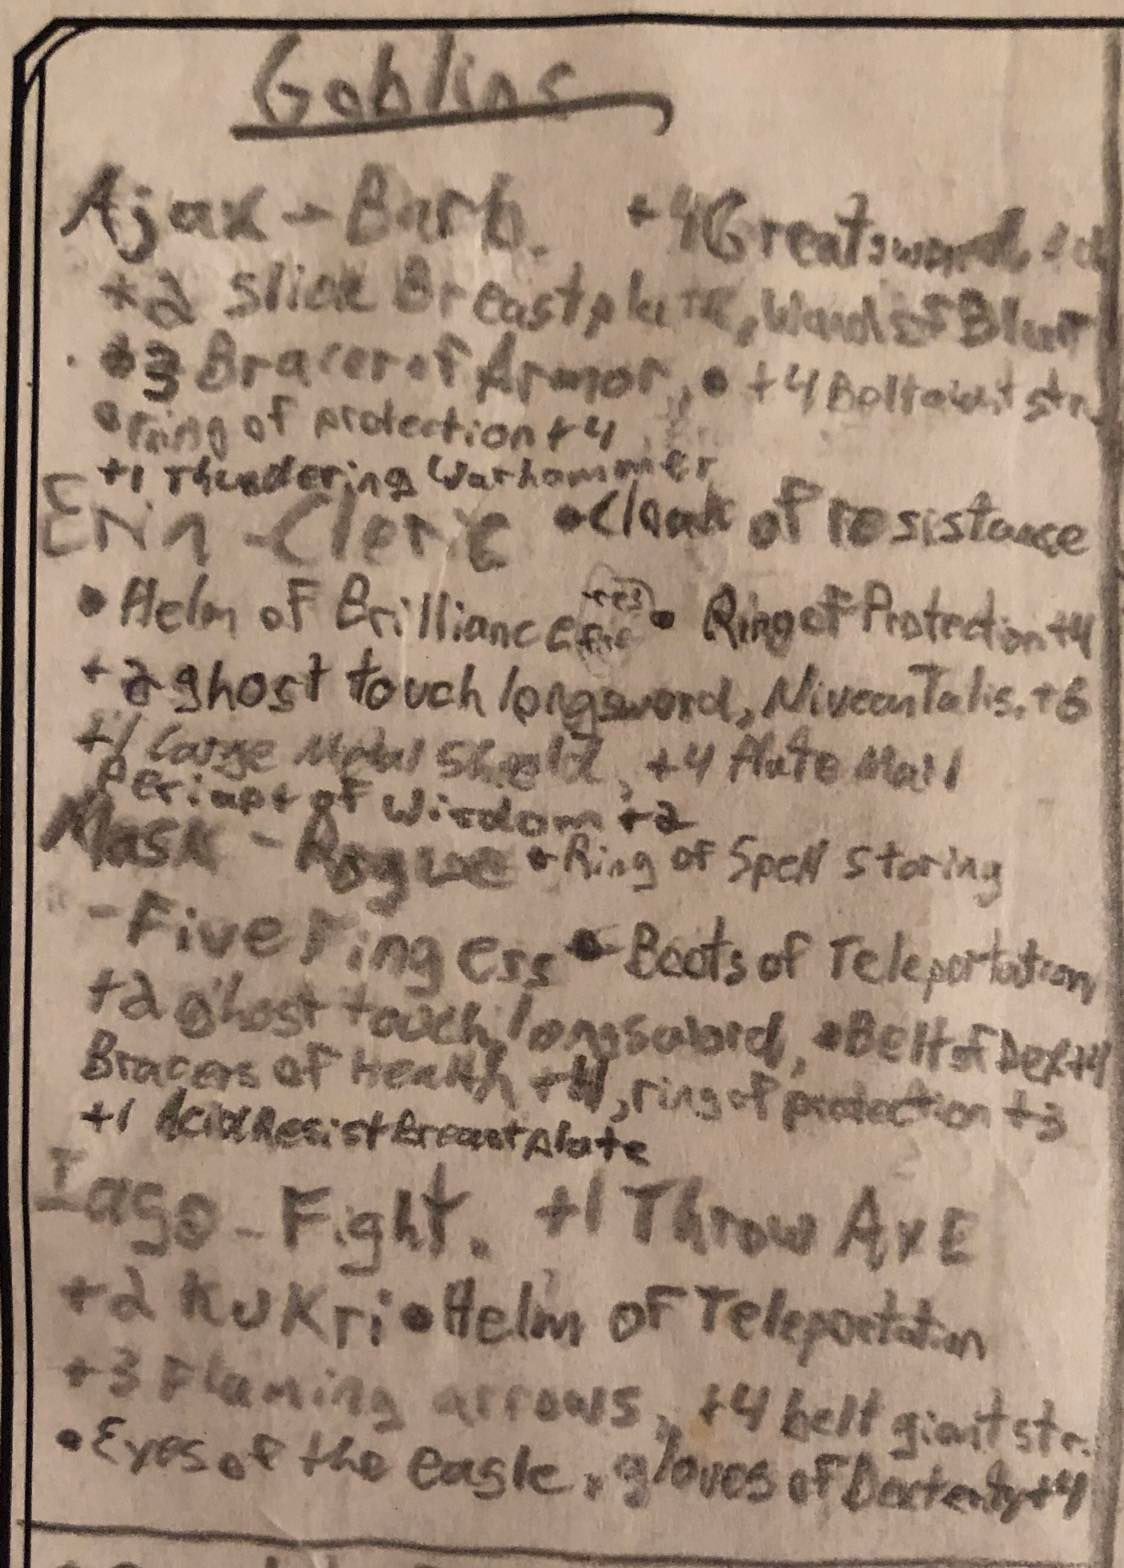 Goblins
Ajax - Barb. +4 Greatsword,
+2 slick Breastplate, Wand of Blur
• +3 Bracer of Armor, • +4 Belt giant str.
• ring of protection +4
+1 Thundering Warhammer
- Cleric • Cloak of resistance
• Helm of Brilliance • Ring of Protection +4
+2 ghost touch longsword, Talis. +6
+1 Large Metal Shield, +4 Plate Mail
Periapt of Wisdom +2
Mask - Rogue • Ring of Spell Storing
- Five Fingers • Boots of Teleportation
+2 ghost touch longsword, • Belt of Dex +4
Bracers of Health +4, ring of protection +3
+1 Acid Resist Breastplate
Iago - Fight. +1 Throw AxE
+2 KuKri • Helm of Teleportation
+3 Flaming arrows, +4 belt giant str.
• Eyes of the eagle, gloves of Dexterity +4